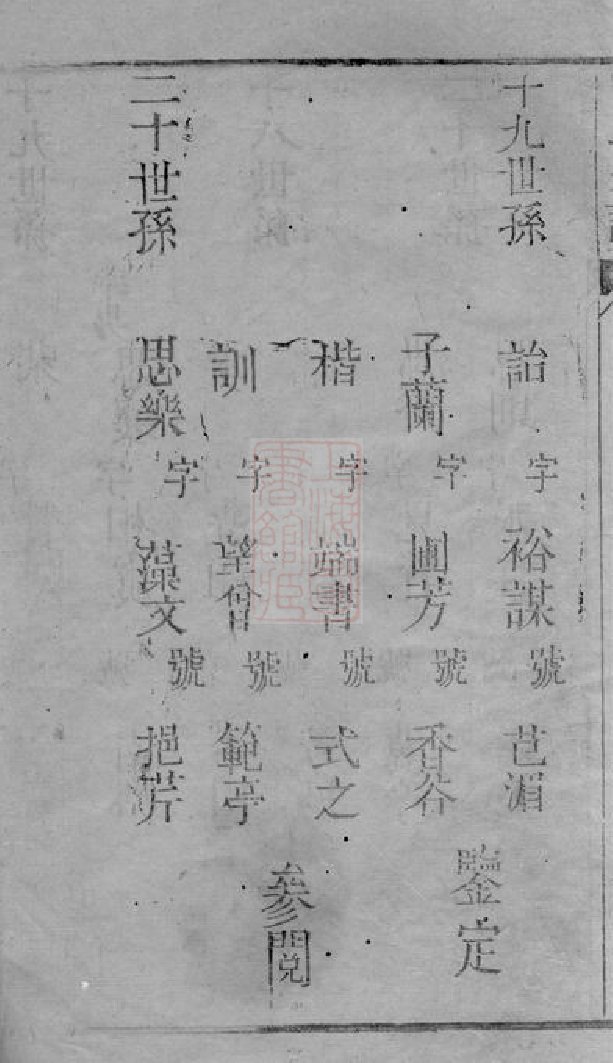 十九世孫 詒 字 裕謀 號 芑湄
子蘭 字 圃芳 號 香谷 鑒定
楷 字 端書 號 式之
訓 字 望曾 號 範亭 參閱
二十世孫 思樂 字 藻文 號 挹芹
上海圖書館藏